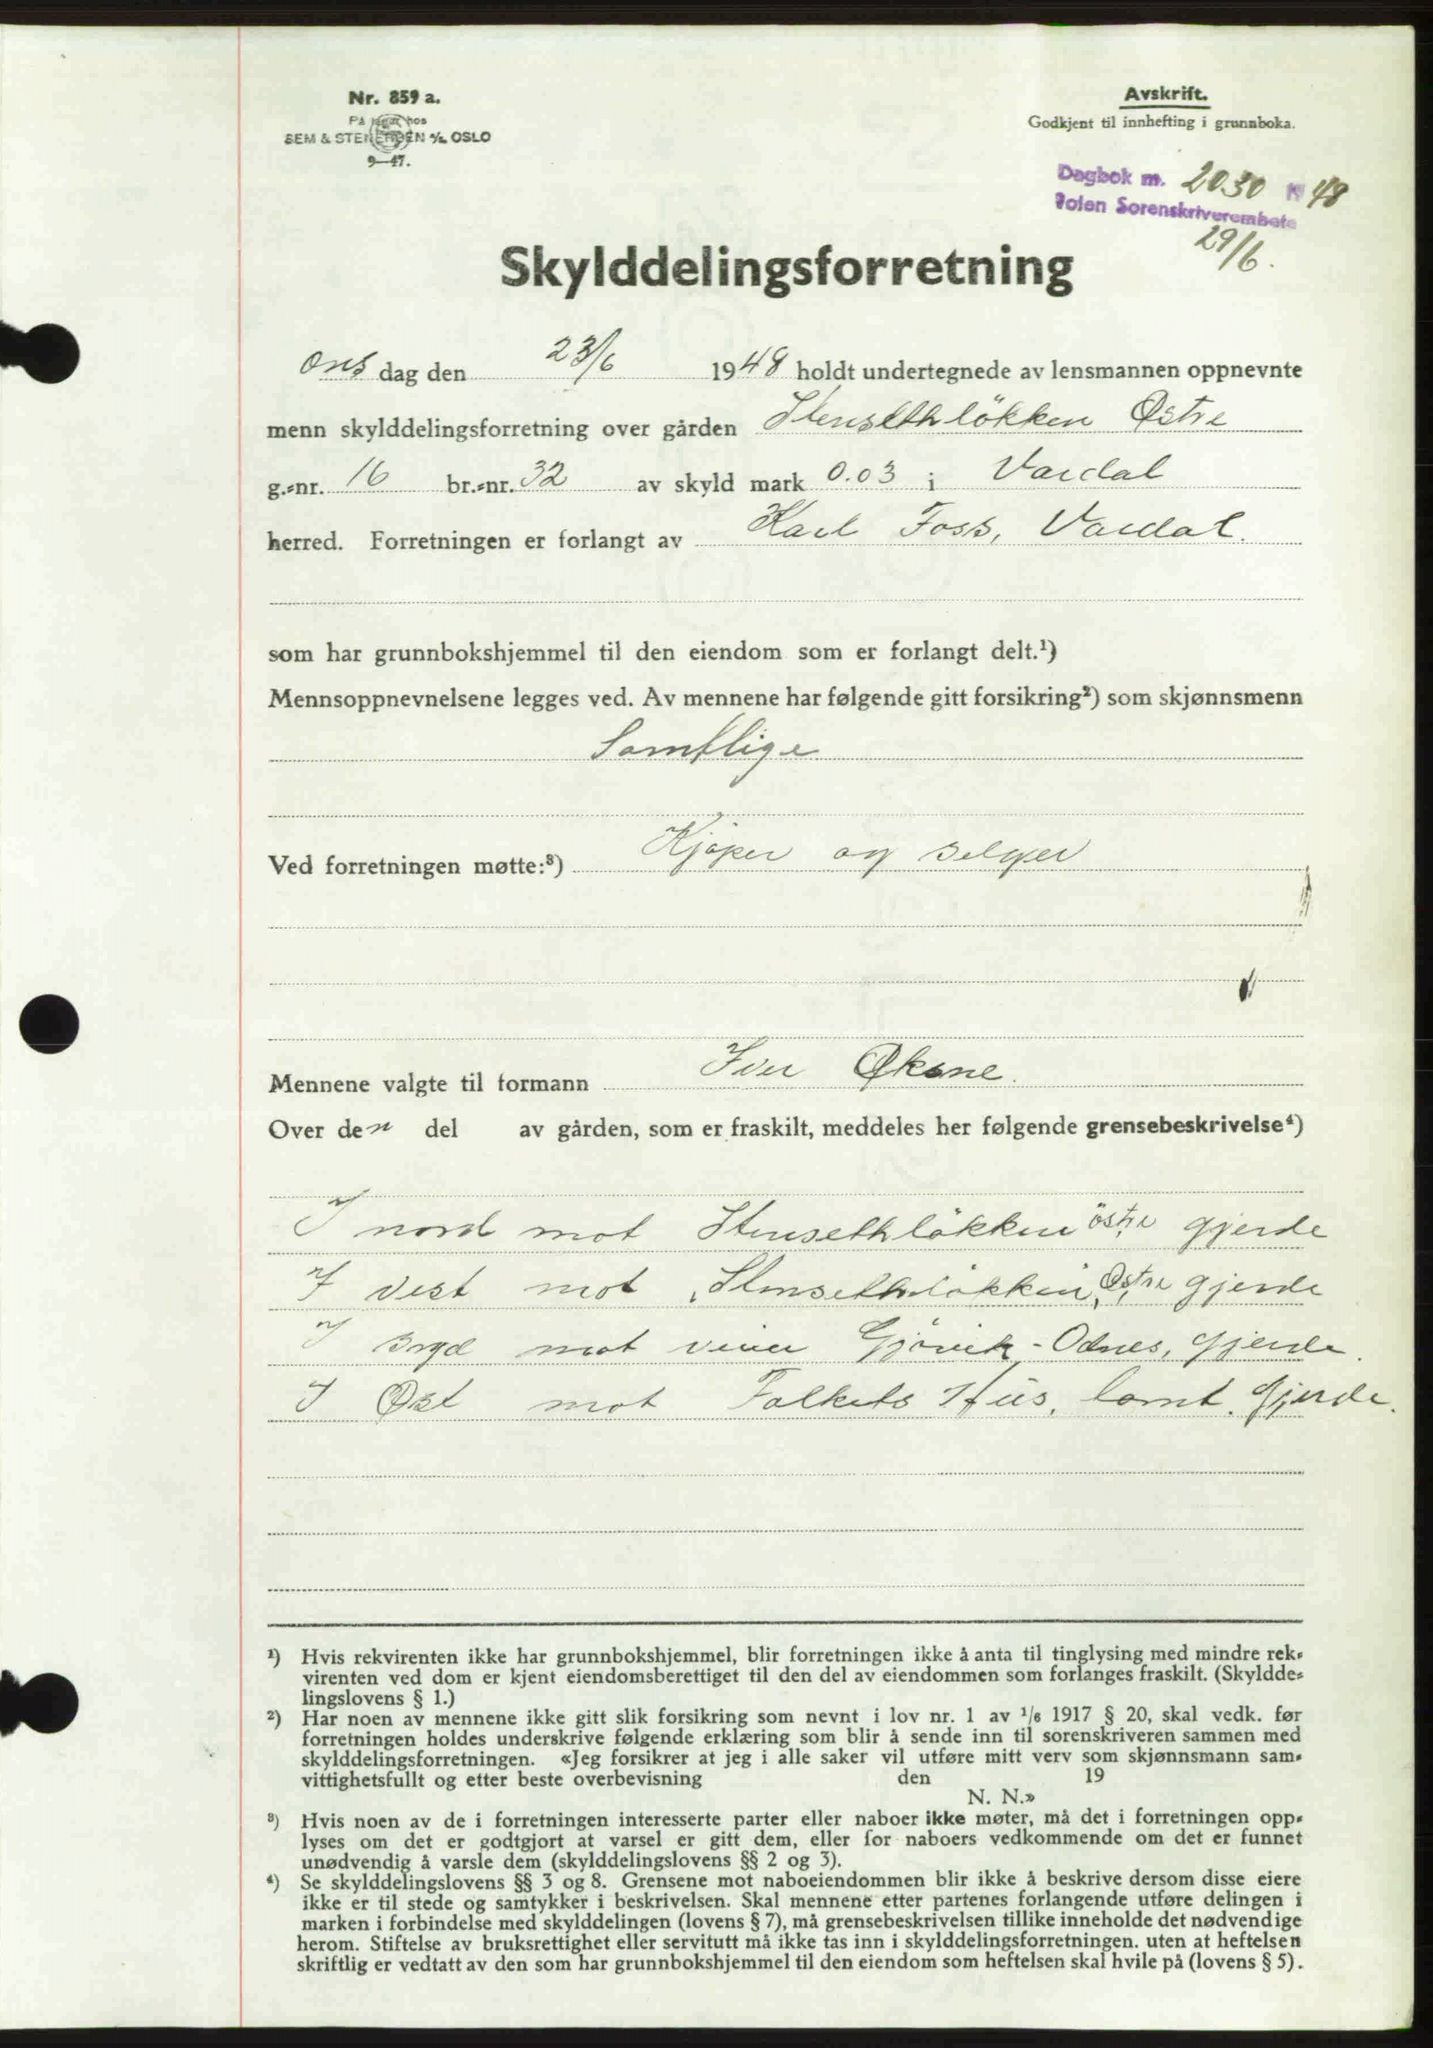 Nr. 859 a.
På lager hos
SEM & STENERSEN A/S OSLO
9—47.
Avskrift.
Godkjent til innhefting i grunnboka.
Dagbok nr. 2030 19 48
Toten Sorenskriverembete
29/6.
Skylddelingsforretning
Ons dag den 23/6 1948 holdt undertegnede av lensmannen oppnevnte
menn skylddelingsforretning over gården Stensethløkken Østre
g.-nr. 16 br.-nr. 32 av skyld mark 0.03 i Vardal
herred. Forretningen er forlangt av Karl Foss, Vardal.
som har grunnbokshjemmel til den eiendom som er forlangt delt.¹)
Mennsoppnevnelsene legges ved. Av mennene har følgende gitt forsikring²) som skjønnsmenn
Samtlige
Ved forretningen møtte:³) Kjøper og selger
Mennene valgte til formann Iver Øksne.
Over den del av gården, som er fraskilt, meddeles her følgende grensebeskrivelse⁴)
I nord mot Stensethløkken östre gjerde
I vest mot Stensethløkken, Østre gjerde
I syd mot veien Gjøvik-Odnes, gjerde.
I Øst mot Folkets Hus, samt. gjerde.
¹) Hvis rekvirenten ikke har grunnbokshjemmel, blir forretningen ikke å anta til tinglysing med mindre rek-
virenten ved dom er kjent eiendomsberettiget til den del av eiendommen som forlanges fraskilt. (Skyldde-
lingslovens § 1.)
²) Har noen av mennene ikke gitt slik forsikring som nevnt i lov nr. 1 av 1/6 1917 § 20, skal vedk. før
forretningen holdes underskrive følgende erklæring som blir å sende inn til sorenskriveren sammen med
skylddelingsforretningen. «Jeg forsikrer at jeg i alle saker vil utføre mitt verv som skjønnsmann sam-
vittighetsfullt og etter beste overbevisning den 19
N. N.»
³) Hvis noen av de i forretningen interesserte parter eller naboer ikke møter, må det i forretningen opp-
lyses om det er godtgjort at varsel er gitt dem, eller for naboers vedkommende om det er funnet
unødvendig å varsle dem (skylddelingslovens §§ 2 og 3).
⁴) Se skylddelingslovens §§ 3 og 8. Grensene mot naboeiendommen blir ikke å beskrive dersom disse eiere
ikke er til stede og samtykker i beskrivelsen. Skal mennene etter partenes forlangende utføre delingen i
marken i forbindelse med skylddelingen (lovens § 7), må grensebeskrivelsen tillike inneholde det nødvendige
herom. Stiftelse av bruksrettighet eller servitutt må ikke tas inn i skylddelingsforretningen. uten at heftelsen
skriftlig er vedtatt av den som har grunnbokshjemmel til den eiendom som heftelsen skal hvile på (lovens § 5).